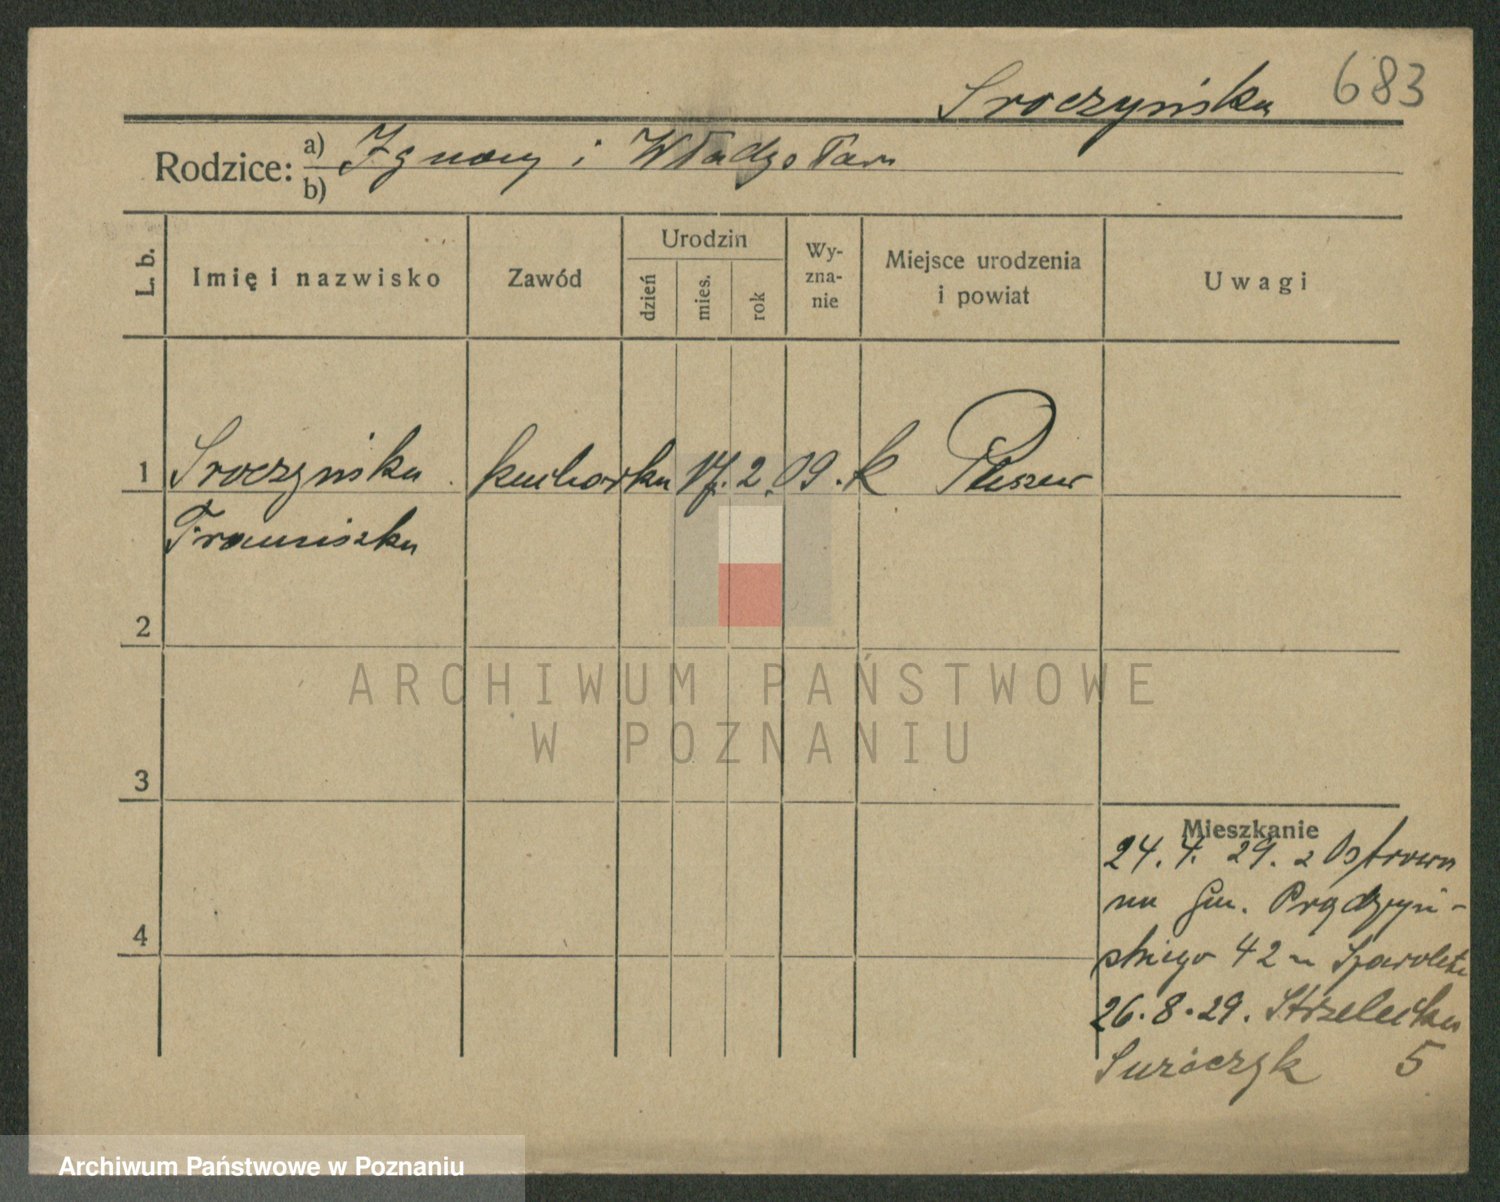 Sroczyńska 683
Rodzice: a) Ignacy i Władysława
b)
L. b.
Imię i nazwisko
Zawód
Urodzin
dzień
mies.
rok
Wy-
zna-
nie
Miejsce urodzenia
i powiat
Uwagi
1 Sroczyńska kucharka 17. 2. 09. k Pleszew
Franciszka
2
ARCHIWUM PAŃSTWOWE
W POZNANIU
3
Mieszkanie
24. 4. 29. z Ostrowa
na Gen. Prądzyń-
skiego 42 u
26. 8. 29. Strzelecka
5
4
Archiwum Państwowe w Poznaniu